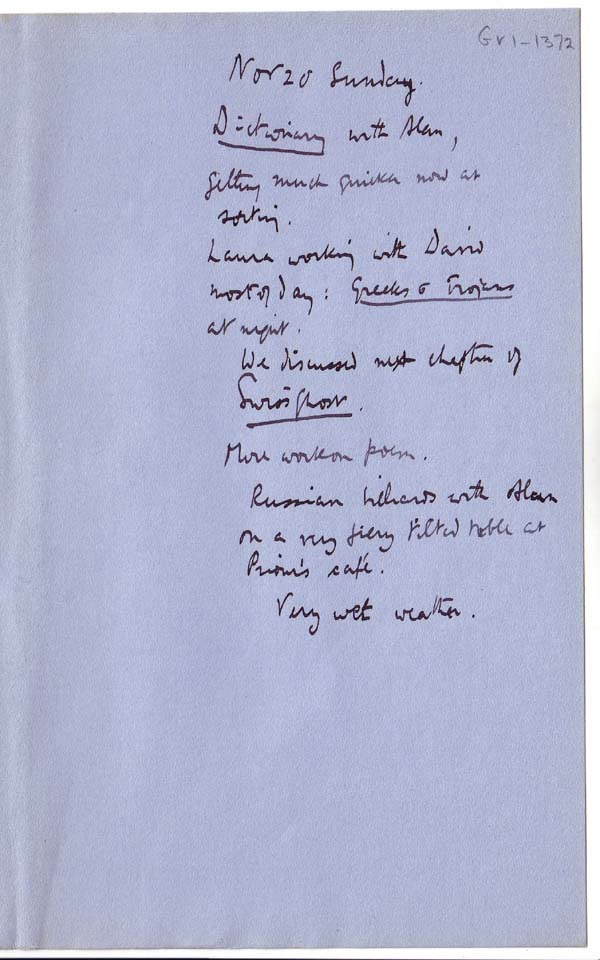 GV1-1372
Nov 20 Sunday.
Dictionary with Alan,
getting much quicker now at
sorting.
Laura working with David
most of day: Greeks & Trojans
at night.
We discussed next chapter of
Swiss Ghost.
More work on poem.
Russian billiards with Alan
on a very fiery tilted table at
Prior's café.
Very wet weather.